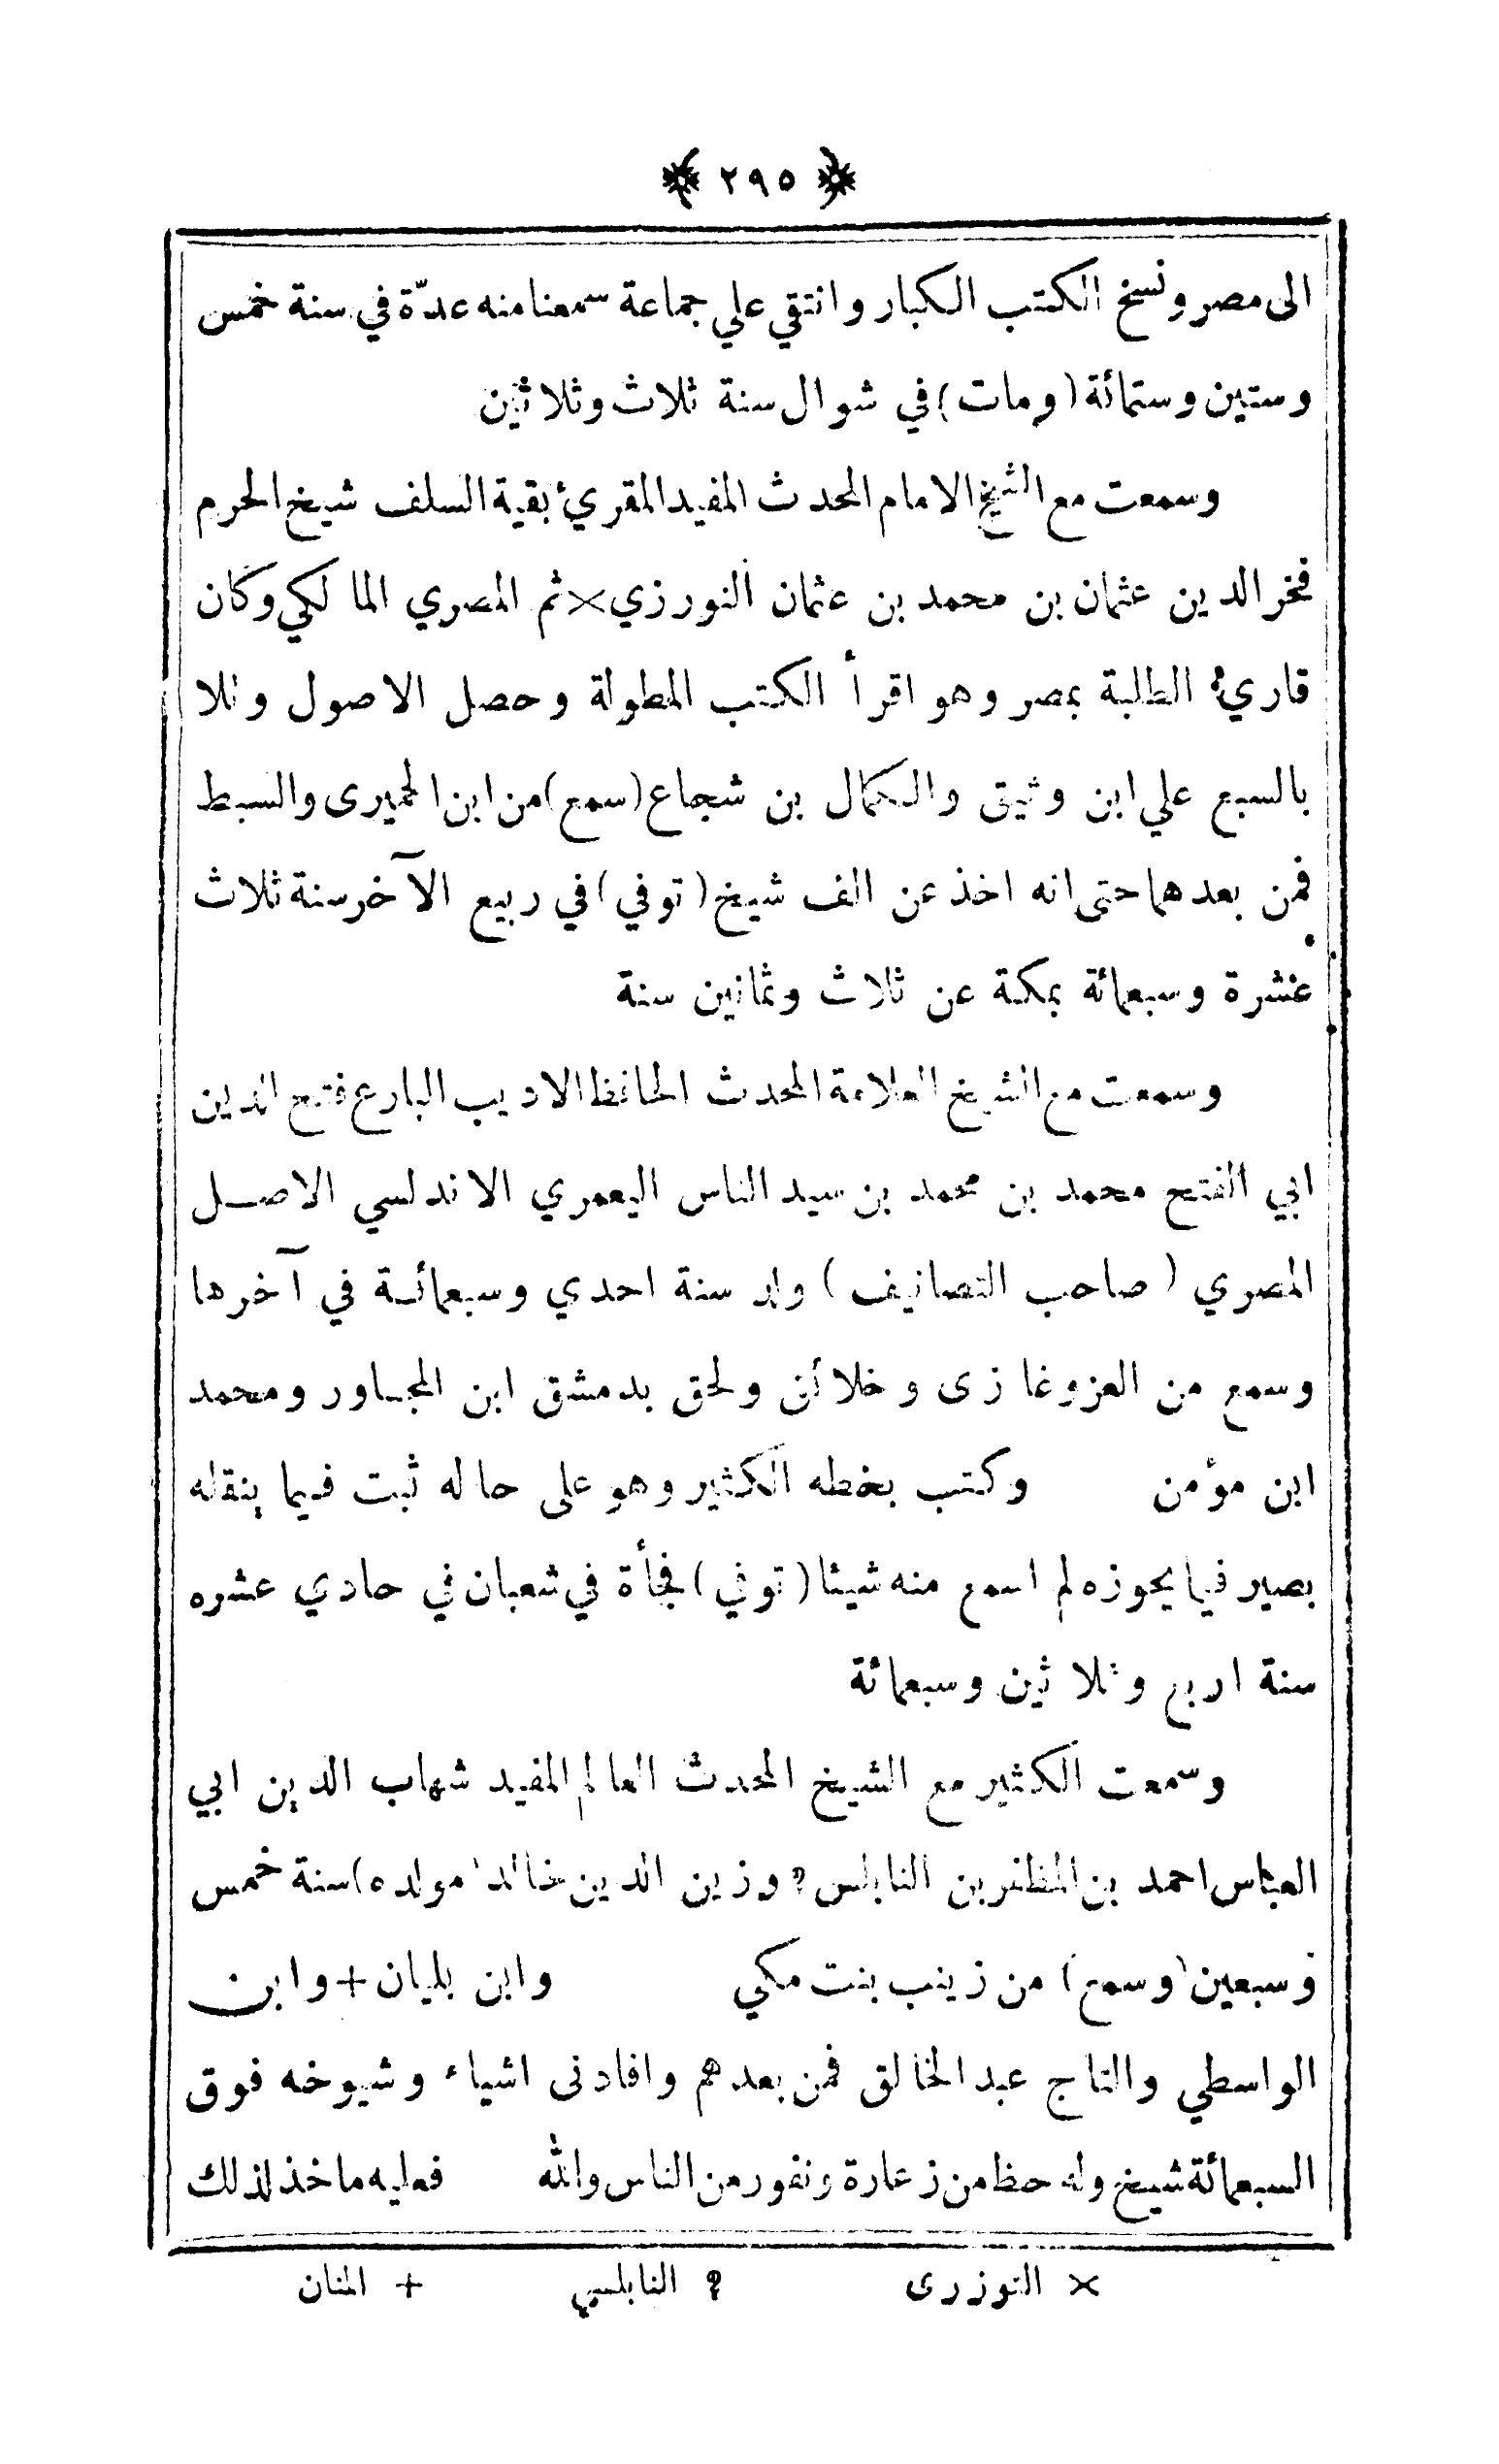 ﴿ ٢٩٥ ﴾
الى مصر ونسخ الكتب الكبار وانتقي علي جماعة سمعنا منه عدّة في سنة خمس
وستين وستمائة (ومات) في شوال سنة ثلاث وثلاثين
وسمعت مع الشيخ الامام المحدث المفيد المقريء بقية السلف شيخ الحرم
فخر الدين عثمان بن محمد بن عثمان النورزي× ثم المصري المالكي وكان
قاريء الطلبة بمصر وهو اقرأ الكتب المطولة وحصل الاصول وتلا
بالسبع علي ابن وثيق والكمال بن شجاع (سمع) من ابن الحميرى والسبط
فمن بعدهما حتى انه اخذ عن الف شيخ (توفي) في ربيع الآخر سنة ثلاث
عشرة وسبعمائة بمكة عن ثلاث وثمانين سنة
وسمعت مع الشيخ العلامة المحدث الحافظ الاديب البارع فتح الدين
ابي الفتح محمد بن محمد بن سيد الناس اليعمري الاندلسي الاصل
المصري (صاحب التصانيف) ولد سنة احدي وسبعمائة في آخرها
وسمع من العز وغازى وخلائق ولحق بدمشق ابن المجاور ومحمد
ابن مؤمن وكتب بخطه الكثير وهو على حاله ثبت فيما ينقله
بصير فيما يحوزه لم اسمع منه شيئا (توفي) فجأة في شعبان في حادي عشره
سنة اربع وثلاثين وسبعمائة
وسمعت الكثير مع الشيخ المحدث العالم المفيد شهاب الدين ابي
العباس احمد بن المظفر بن النابلس؟ وزين الدين خالد (مولده) سنة خمس
وسبعين (وسمع) من زينب بنت مكي وابن بلبان+ وابن
الواسطي والتاج عبد الخالق فمن بعدهم وافادنى اشياء وشيوخه فوق
السبعمائة شيخ وله حظ من زعارة ونفور من الناس والله فعليه ماخذ لذلك
× التوزرى ؟ النابلسي + المنان